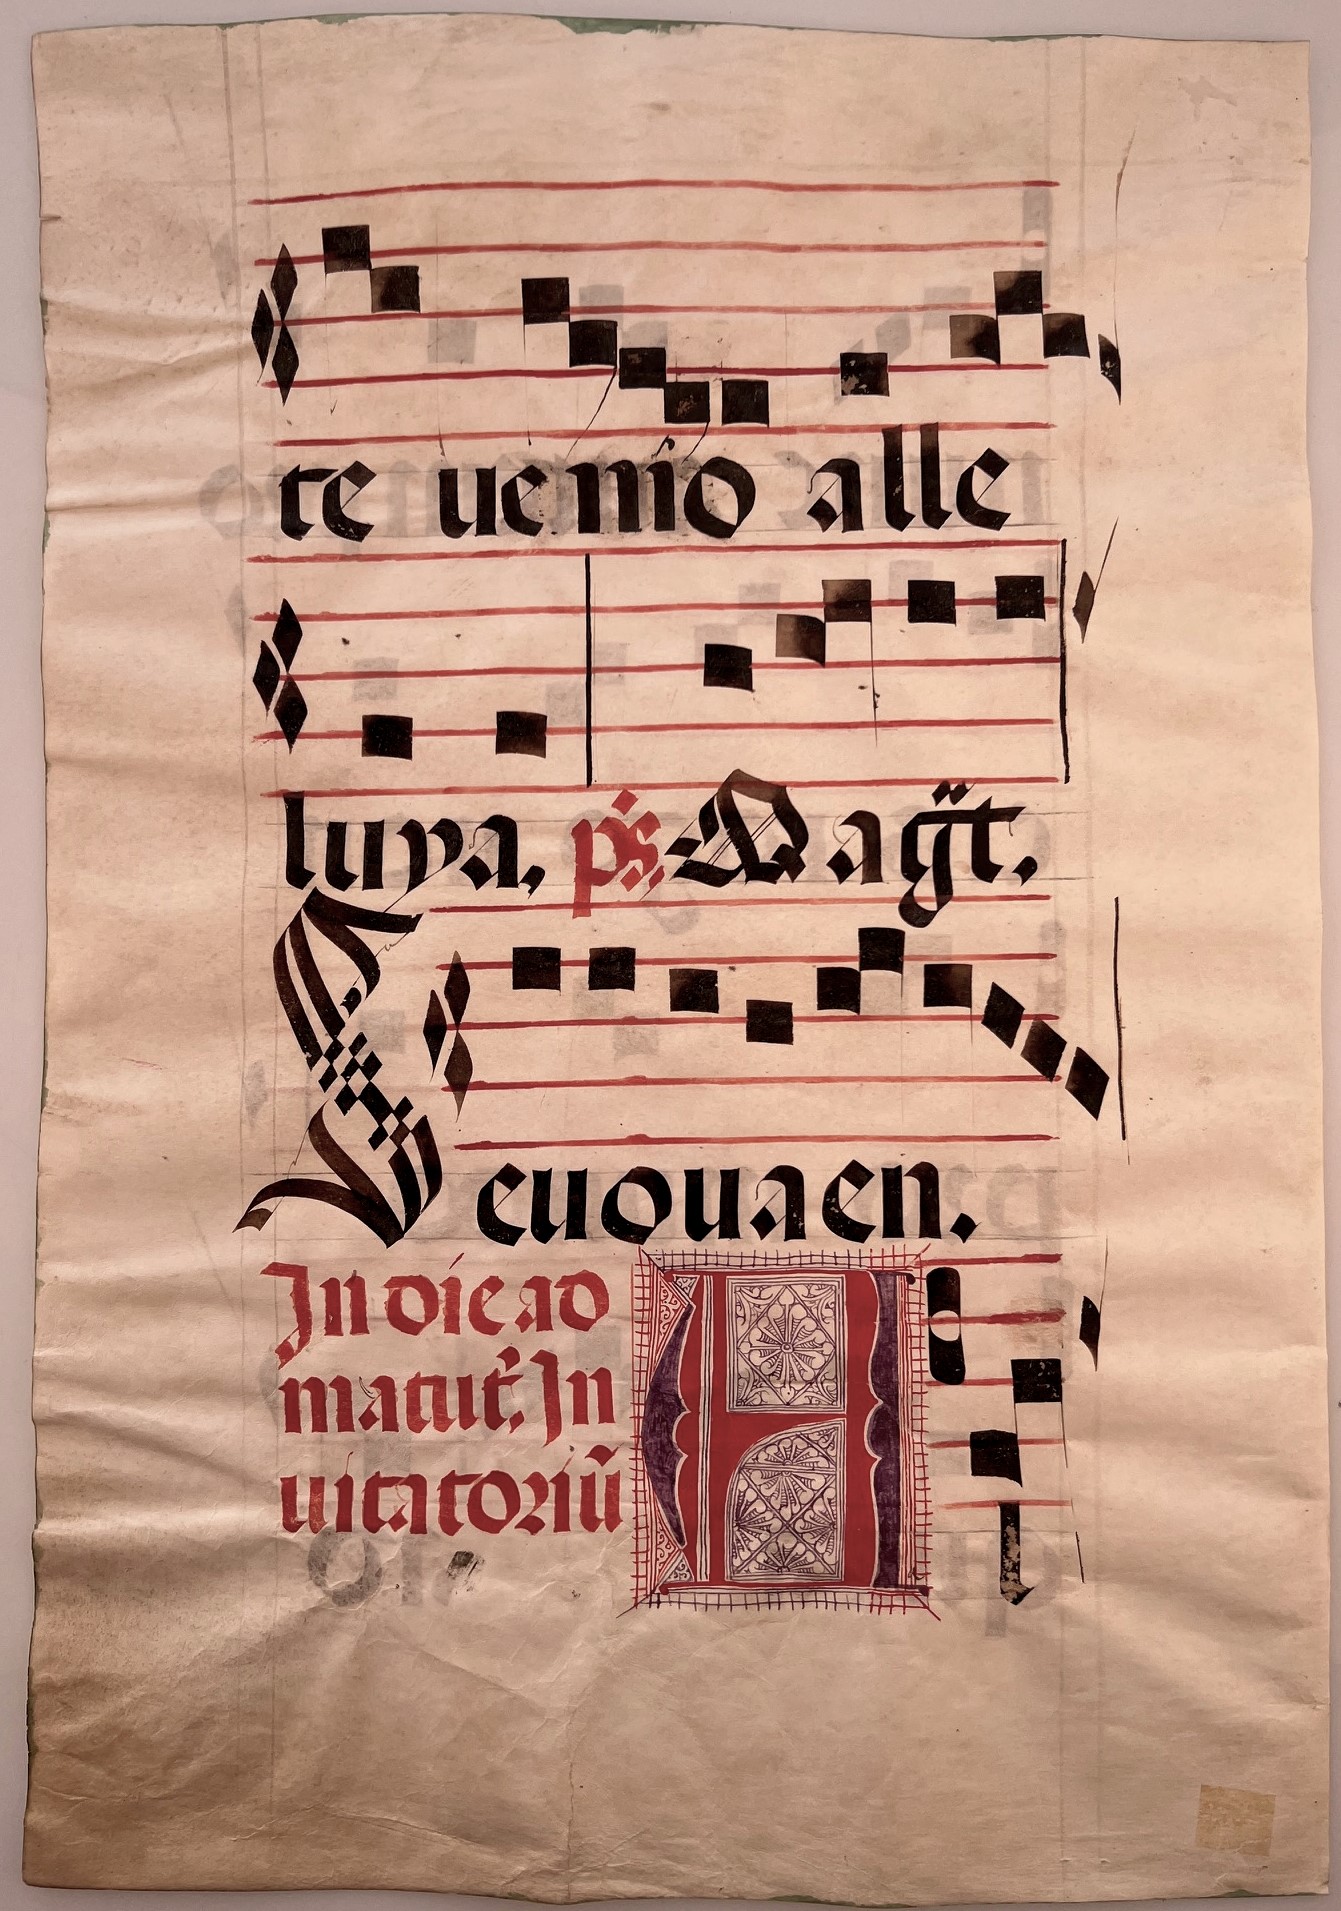 te uenio alle
luya, ps, Magt.
Eeuouaen.
In die ad
matut. In
uitatoriũ
A